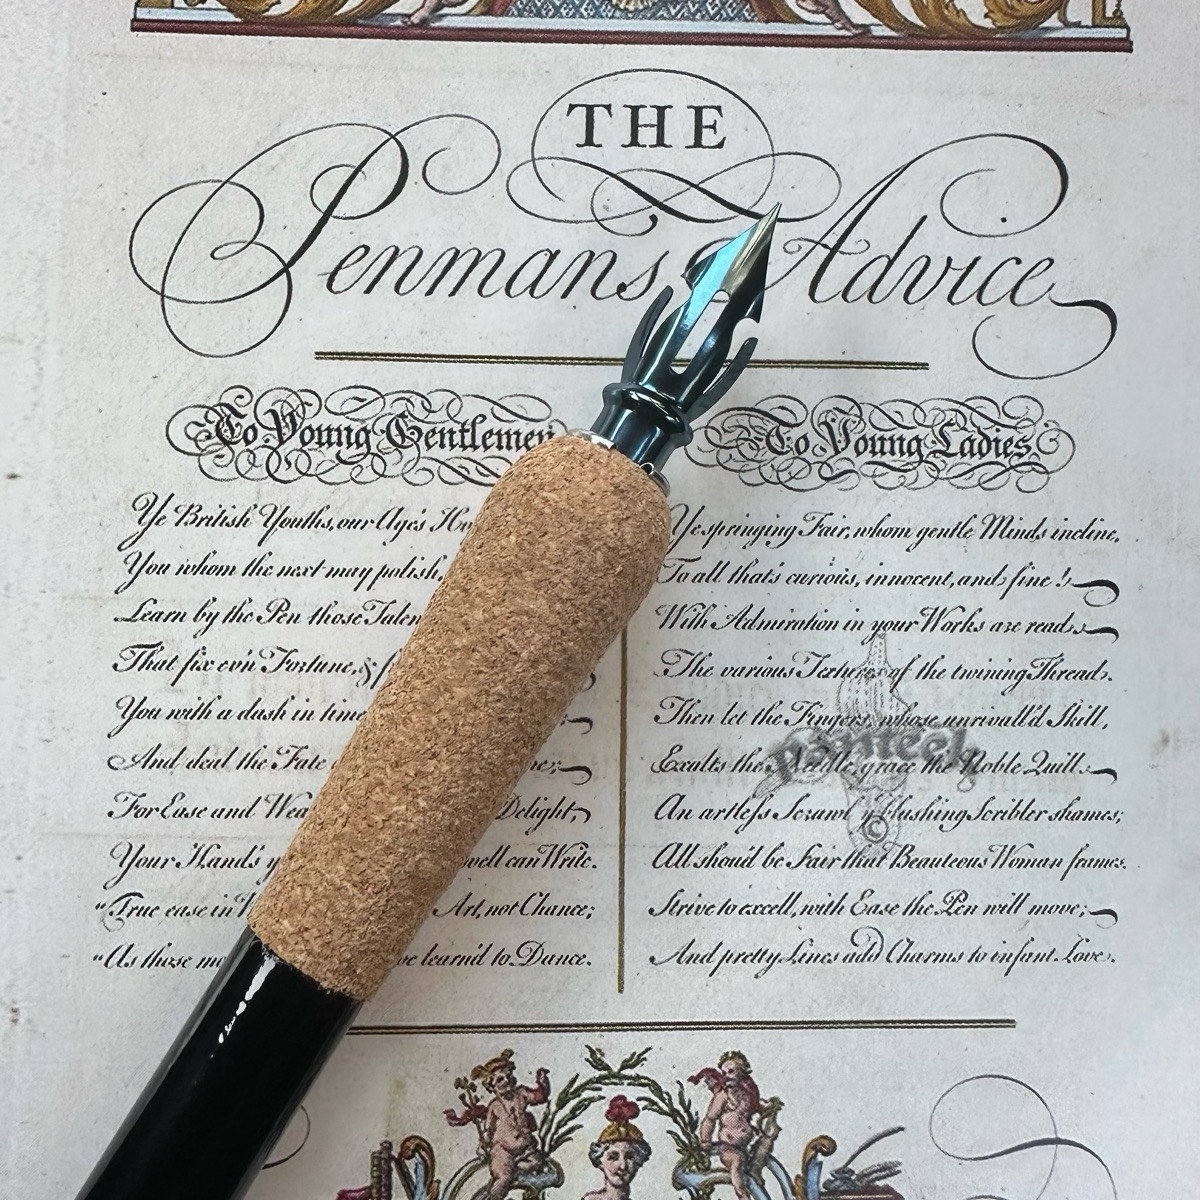 THE
Penmans Advice
To Young Gentlemen
Ye British Youths, our Age's
You whom the next may polish,
Learn by the Pen those
That fix ev'n Fortune, &
You with a dash in time
And deal the Fate
For Ease and Delight,
Your Hand's well can Write.
"True ease in Art, not Chance;
"As those learn'd to Dance.
To Young Ladies.
Ye springing Fair, whom gentle Minds incline,
To all that's curious, innocent, and fine!
With Admiration in your Works are read,
The various Textures of the twining Thread.
Then let the Fingers, whose unrivall'd Skill,
Exalts the Needle, grace the Noble Quill.
An artless Scrawl y blushing Scribler shames;
All shou'd be Fair that Beauteous Woman frames.
Strive to excell, with Ease the Pen will move;
And pretty Lines add Charms to infant Love.
©